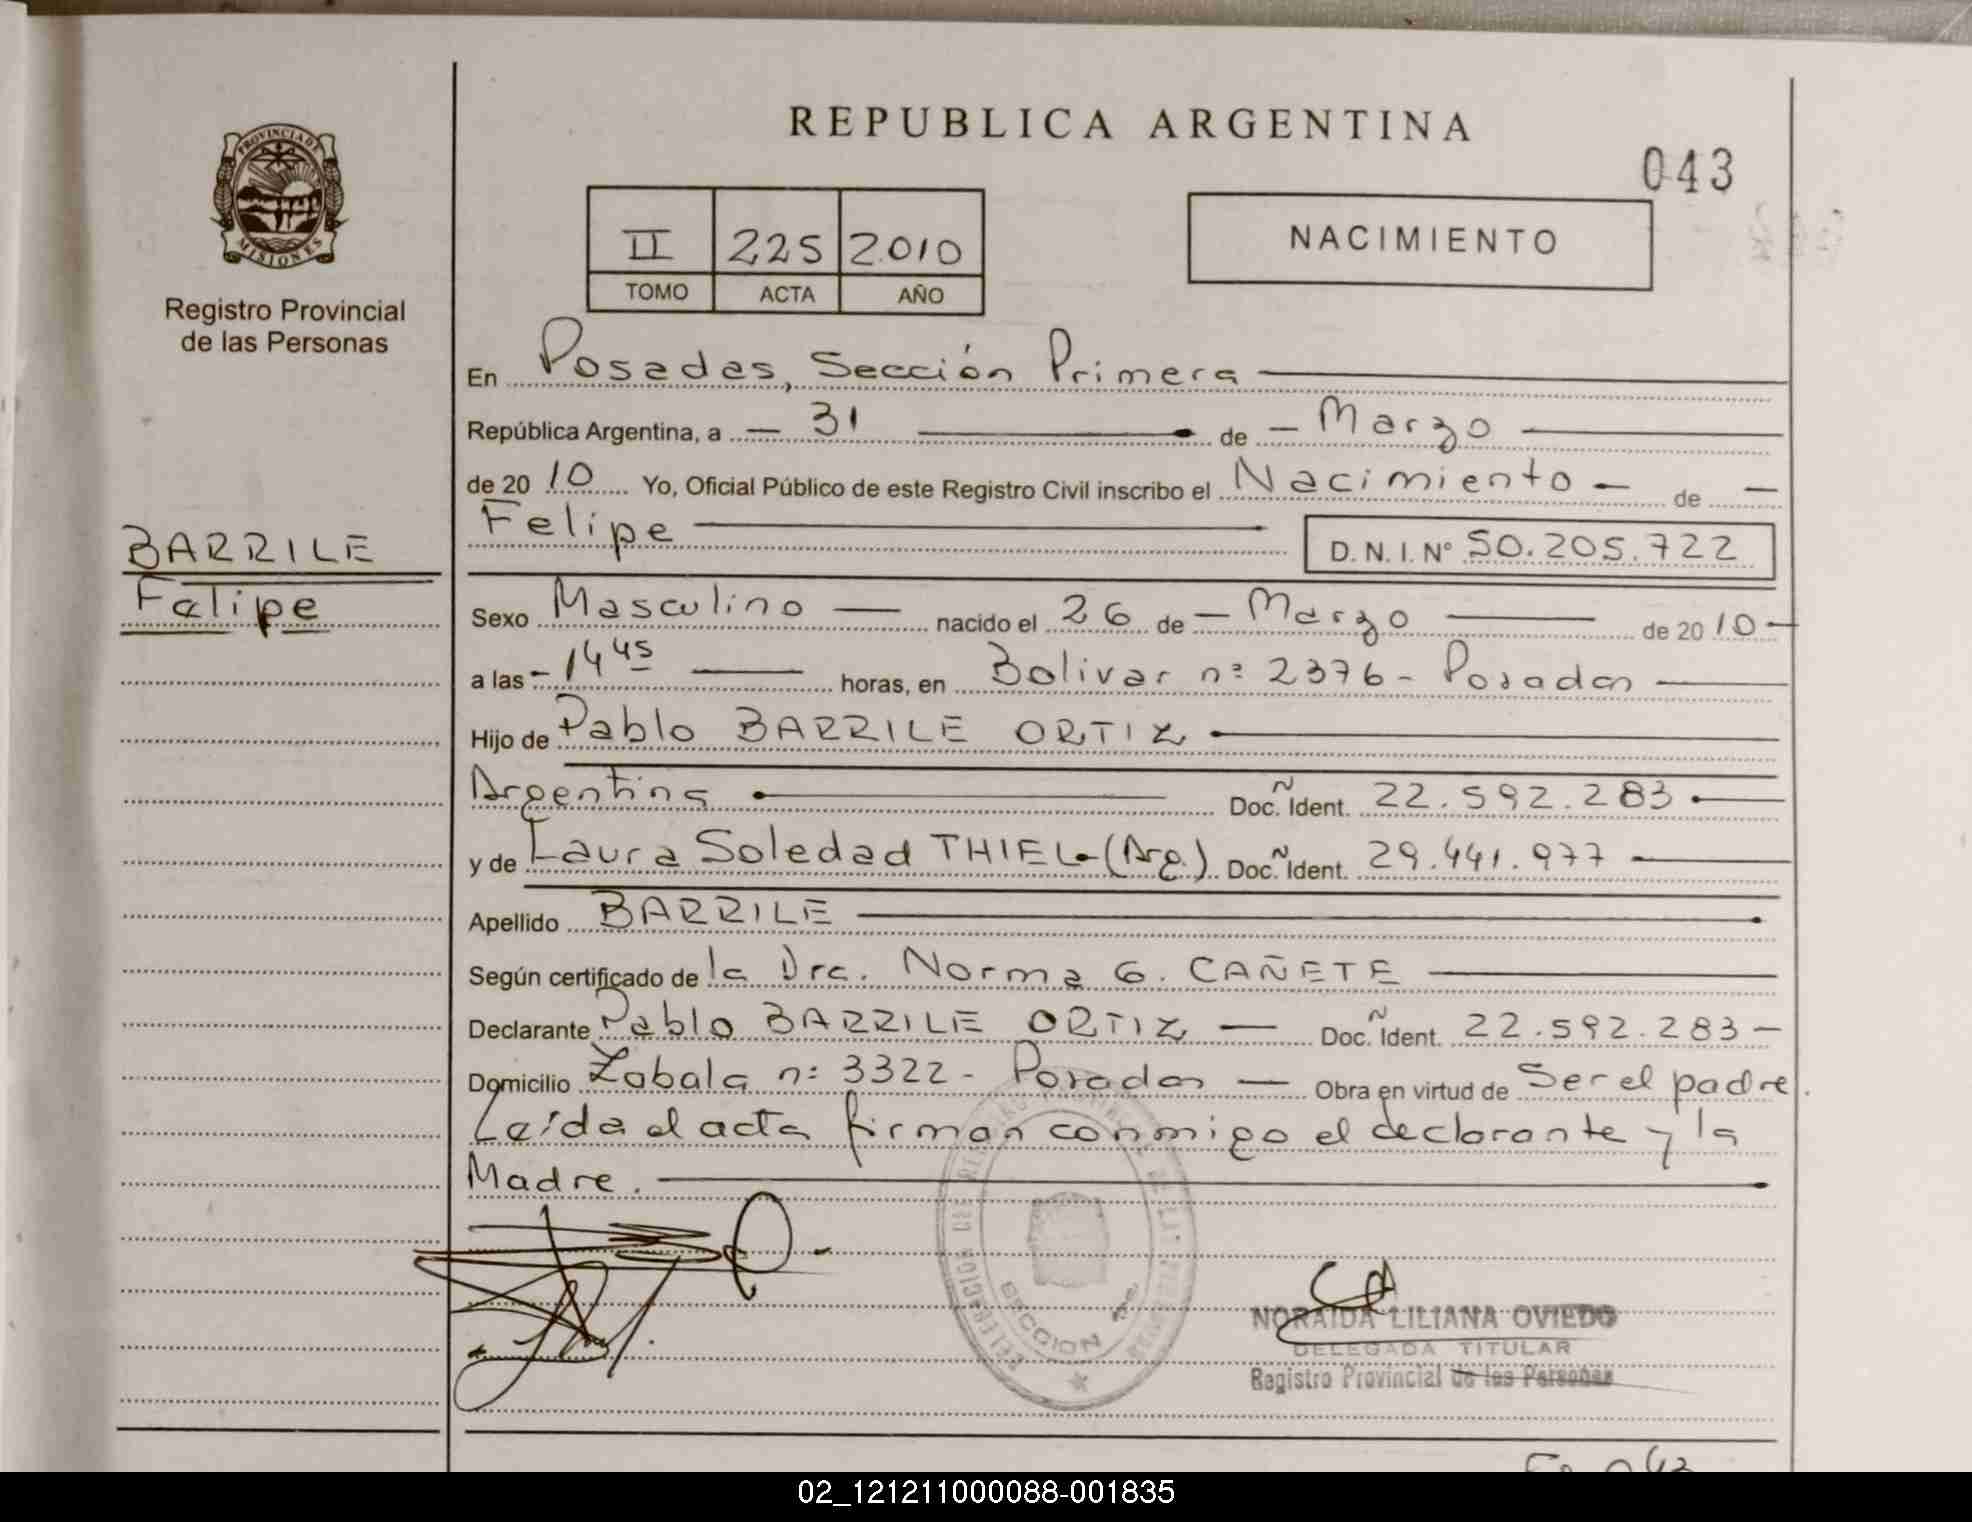 REPUBLICA ARGENTINA
043
PROVINCIA DE
MISIONES
Registro Provincial
de las Personas
II 225 2010
TOMO ACTA AÑO
NACIMIENTO
En Posadas, Sección Primera
República Argentina, a - 31 de - Marzo
de 20 10 Yo, Oficial Público de este Registro Civil inscribo el Nacimiento - de -
Felipe
D. N. I. Nº 50.205.722
BARRILE
Felipe
Sexo Masculino nacido el 26 de - Marzo de 20 10 -
a las - 14 45 horas, en Bolivar nº 2376 - Posadas
Hijo de Pablo BARRILE ORTIZ
Argentina Doc. Ident. 22.592.283
y de Laura Soledad THIEL - (Arg.) Doc. Ident. 29.441.977
Apellido BARRILE
Según certificado de la Dra. Norma G. CAÑETE
Declarante Pablo BARRILE ORTIZ - Doc. Ident. 22.592.283 -
Domicilio Zabala nº 3322 - Posadas - Obra en virtud de Ser el padre.
Leída el acta firman conmigo el declarante y la
Madre.
SECCION
NORAIDA LILIANA OVIEDO
DELEGADA TITULAR
Registro Provincial de las Personas
02_121211000088-001835